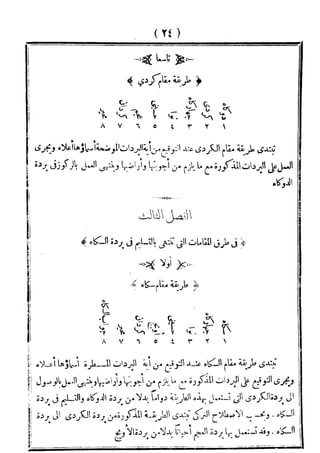 (٢٤)
تاسعا
طريقة مقام كردي
دوكاه كردي جهاركاه نوا حسيني عجم كردان محير
١ ٢ ٣ ٤ ٥ ٦ ٧ ٨
تبتدى طريقة مقام الكردى عند التوقيع من أية البردات الموضحة أسماؤها أعلاه ويجرى
العمل على البردات المذكورة مع ما يلزم من أجوبتها وأراضيها وينتهى العمل بالركوز فى بردة
الدوكاه
الفصل الثالث
فى طرق المقامات التى تنتهى بالتسليم فى بردة السكاه
أولا
طريقة مقام سكاه
سكاه جهاركاه نوا حسيني أويج كردان محير جواب السكاه
١ ٢ ٣ ٤ ٥ ٦ ٧ ٨
تبتدى طريقة مقام السكاه عند التوقيع من أية البردات المسطرة أسماؤها أعلاه
ويجرى التوقيع على البردات المذكورة مع ما يلزم من أجوبتها وأراضيها وينتهى العمل بالوصول
الى بردة الكردى التى تستعمل بهذه الطريقة دواما بدلا من بردة الدوكاه والتسليم فى بردة
السكاه . وبحسب الاصطلاح التركى تبتدى الطريقة المذكورة من بردة الكردى الى بردة
السكاه . وقد تستعمل بها بردة العجم أحيانا بدلا من بردة الأويج